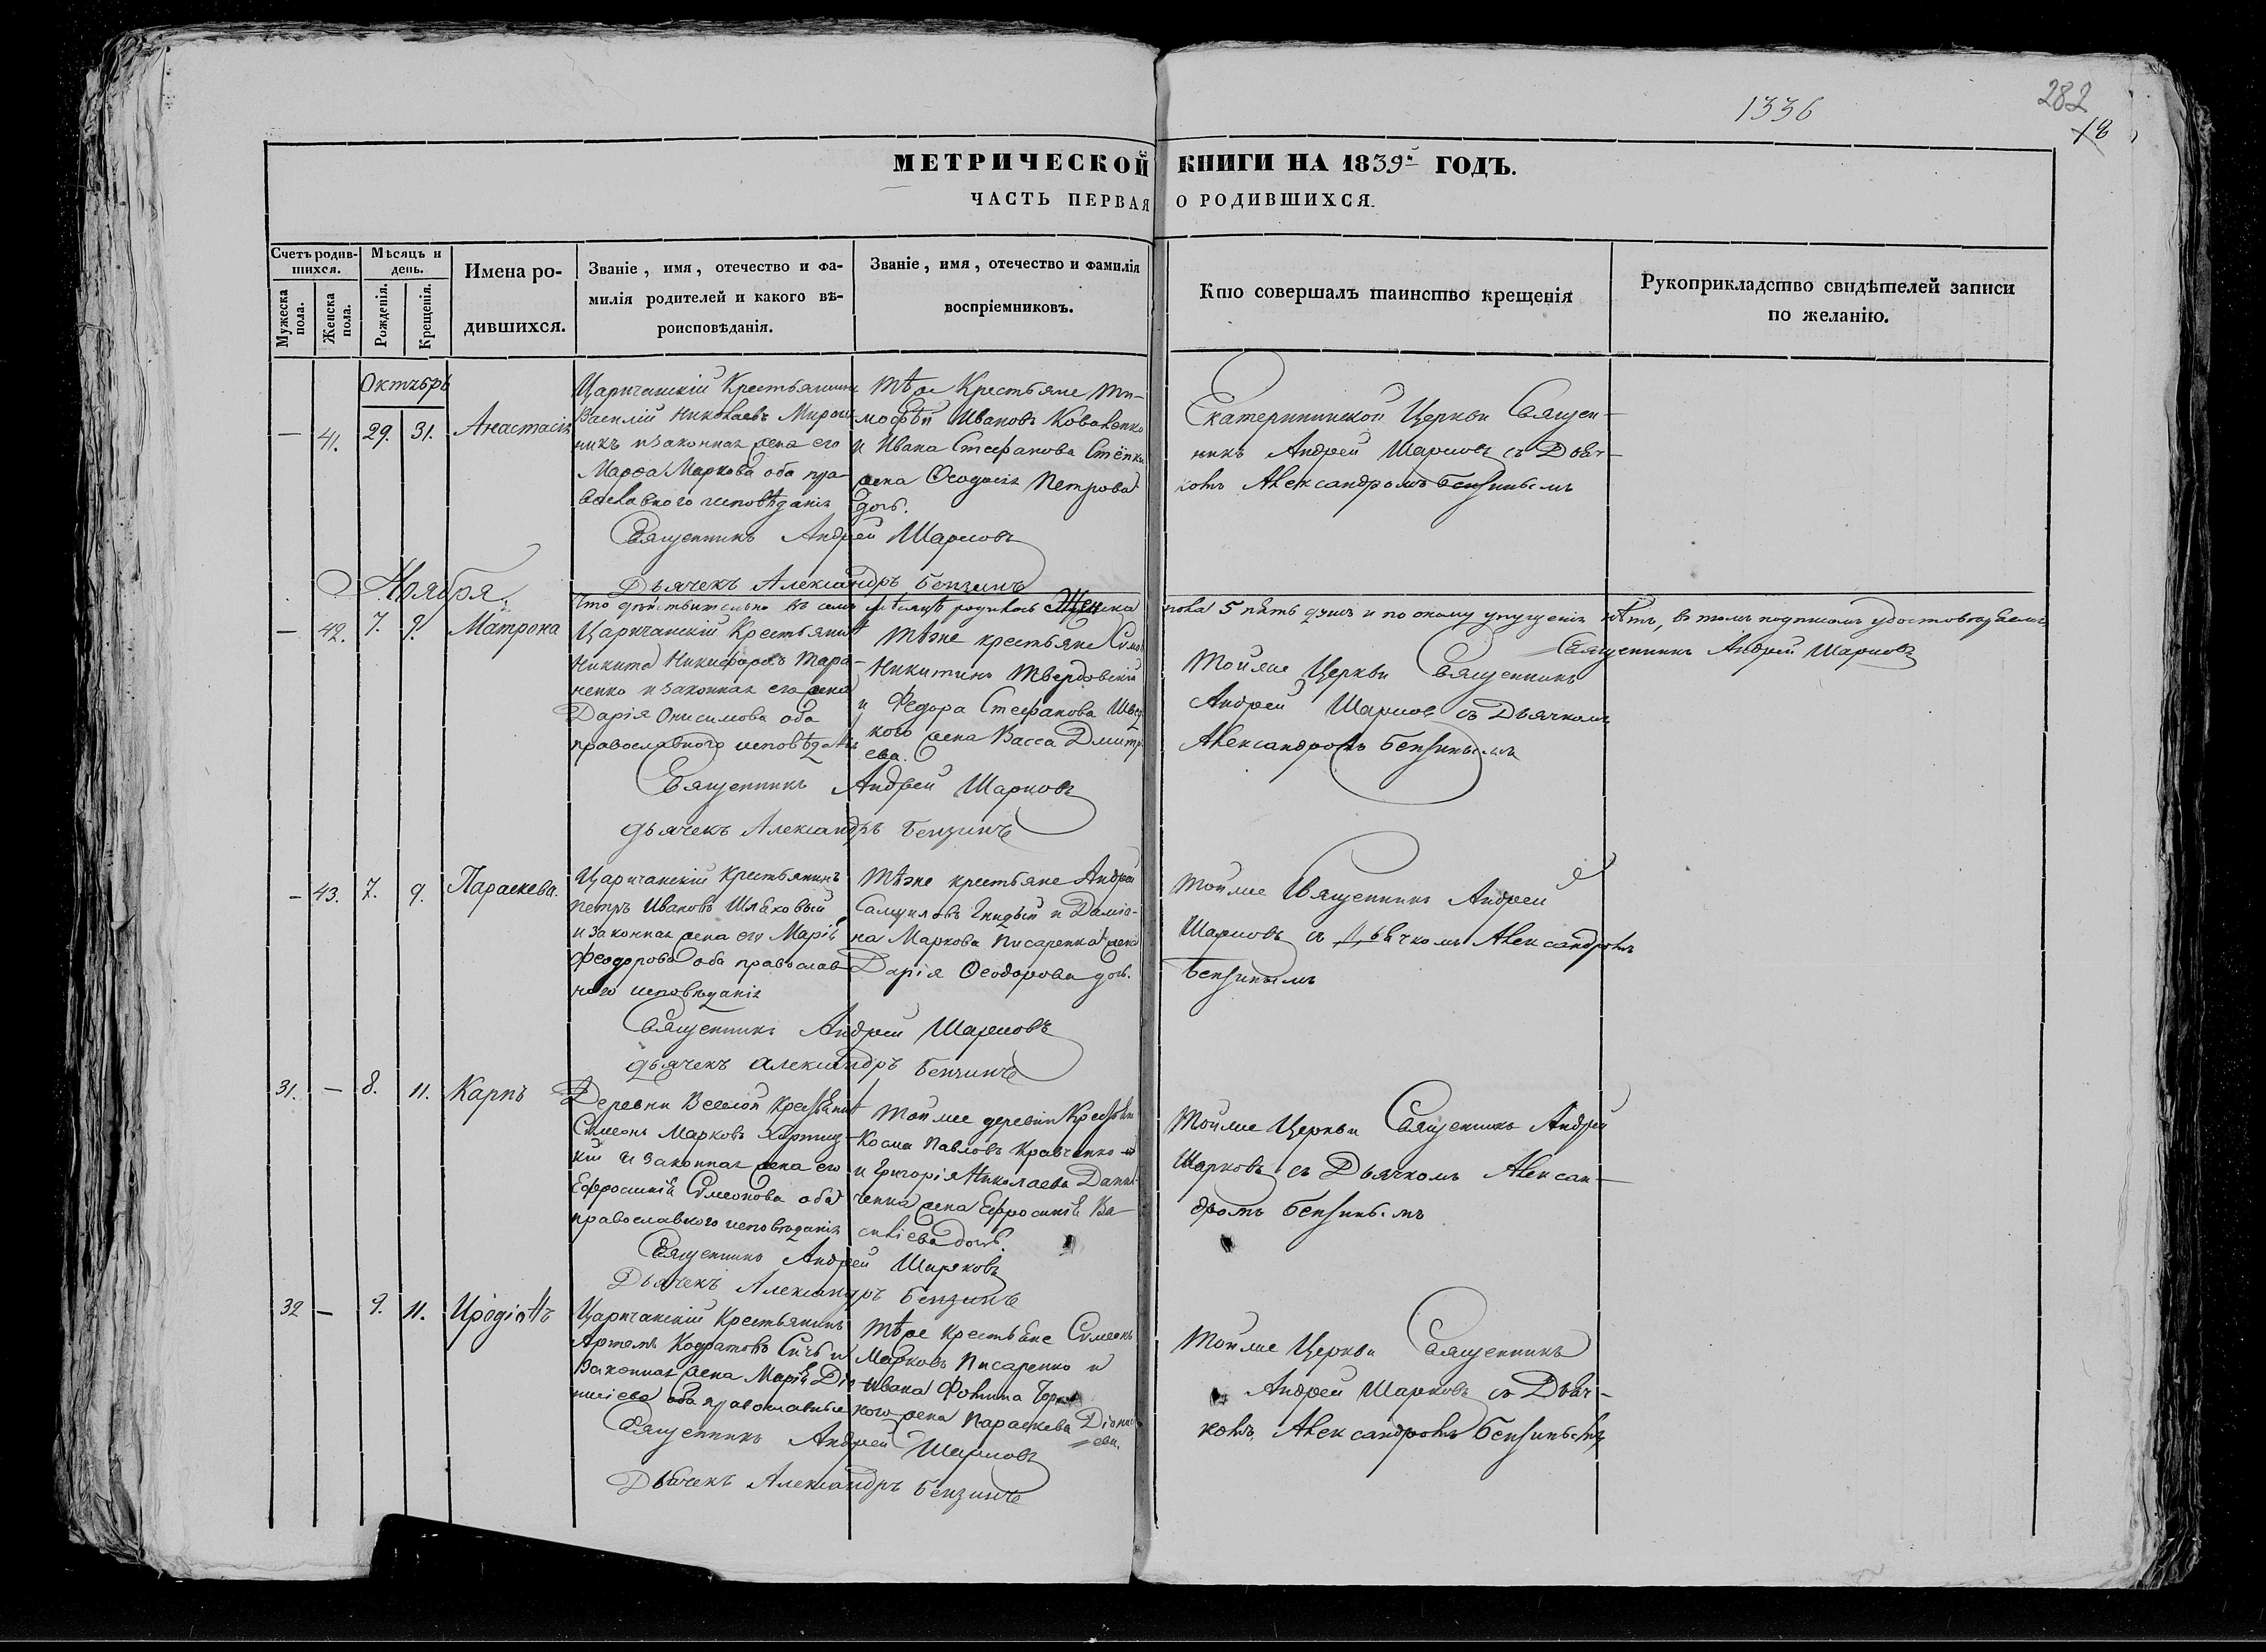 1336
282
18
МЕТРИЧЕСКОЙ КНИГИ НА 1839й ГОДЪ.
ЧАСТЬ ПЕРВАЯ О РОДИВШИХСЯ.
Счетъ родив-
шихся.
Мужеска пола.
Женска пола.
Мѣсяцъ и
день.
Рожденія.
Крещенія.
Имена ро-
дившихся.
Званіе, имя, отечество и фа-
милія родителей и какого вѣ-
роисповѣданія.
Званіе, имя, отечество и фамилія
воспріемниковъ.
Кто совершалъ таинство крещенія
Рукоприкладство свидѣтелей записи
по желанію.
Октябрь
— 41. 29. 31. Анастасія
Царичанскій Крестьянинъ
Василій Николаевъ Мирош
никъ и законная жена его
Марѳа Маркова оба пра-
вославного исповѣданія
Тѣже Крестьяне Ти-
мофѣй Ивановъ Коваленко
и Ивана Стефанова
жена Ѳеодосія Петрова
дочь.
Екатерининской Церкви Священ-
никъ Андрей Шарковъ съ Дьяч-
комъ Александромъ Бензинымъ
Священникъ Андрей Шарковъ
Дьячекъ Александръ Бензинъ
Что дѣйствительно въ семъ мѣсяцѣ родилось Женска пола 5 пять душъ и по оному упущенія нѣтъ, въ томъ подписомъ удостовѣряемъ
Священникъ Андрей Шарковъ
Ноября.
— 42. 7. 9. Матрона
Царичанскій Крестьянин
Никита Никифоровъ Тара-
ненко и законная его жена
Дарія Онисимова оба
православного исповѣданія
Тѣже крестьяне
Никитинъ Твердовскій
и Федора Стефанова
кого жена Васса Дмитрі
ева.
Тойже Церкви Священникъ
Андрей Шарковъ съ Дьячкомъ
Александромъ Бензинымъ
Священникъ Андрей Шарковъ
дьячекъ Александръ Бензинъ
— 43. 7. 9. Параскева.
Царичанскій Крестьянинъ
Петръ Ивановъ Шляховый
и законная жена его Марія
Феодорова оба православ
ного исповѣданія
Тѣже крестьяне Андрей
Самуиловъ Гнидый и Даміа-
на Маркова Писаренка жена
Дарія Ѳеодорова дочь.
Тойже Священникъ Андрей
Шарковъ съ Дьячкомъ Александромъ
Бензинымъ
Священникъ Андрей Шарковъ
дьячекъ Александръ Бензинъ
31. — 8. 11. Карпъ
Деревни Веселой Крестьянин
Симеонъ Марковъ
кій и законная жена его
Ефросинія Симеонова оба
православного исповѣданія
Тойже деревни Крестьяне
Косма Павловъ Кравченко
и Григорія Николаева Данил
ченка жена Ефросинія Ва-
силіева дочь.
Тойже Церкви Священникъ Андрей
Шарковъ съ Дьячкомъ Алексан-
дромъ Бензинымъ
Священникъ Андрей Шарковъ
Дьячекъ Александръ Бензинъ
32 — 9. 11. Иродіонъ
Царичанскій Крестьянинъ
Артемъ Кодратовъ Сичь и
законная жена Марія Діо
нисіева оба православные
Тѣже крестьяне Симеонъ
Марковъ Писаренко и
Ивана Фомина
кого жена Параскева Діониси
ева.
Тойже Церкви Священникъ
Андрей Шарковъ съ Дьяч-
комъ Александромъ Бензинымъ
Священникъ Андрей Шарковъ
Дьячекъ Александръ Бензинъ